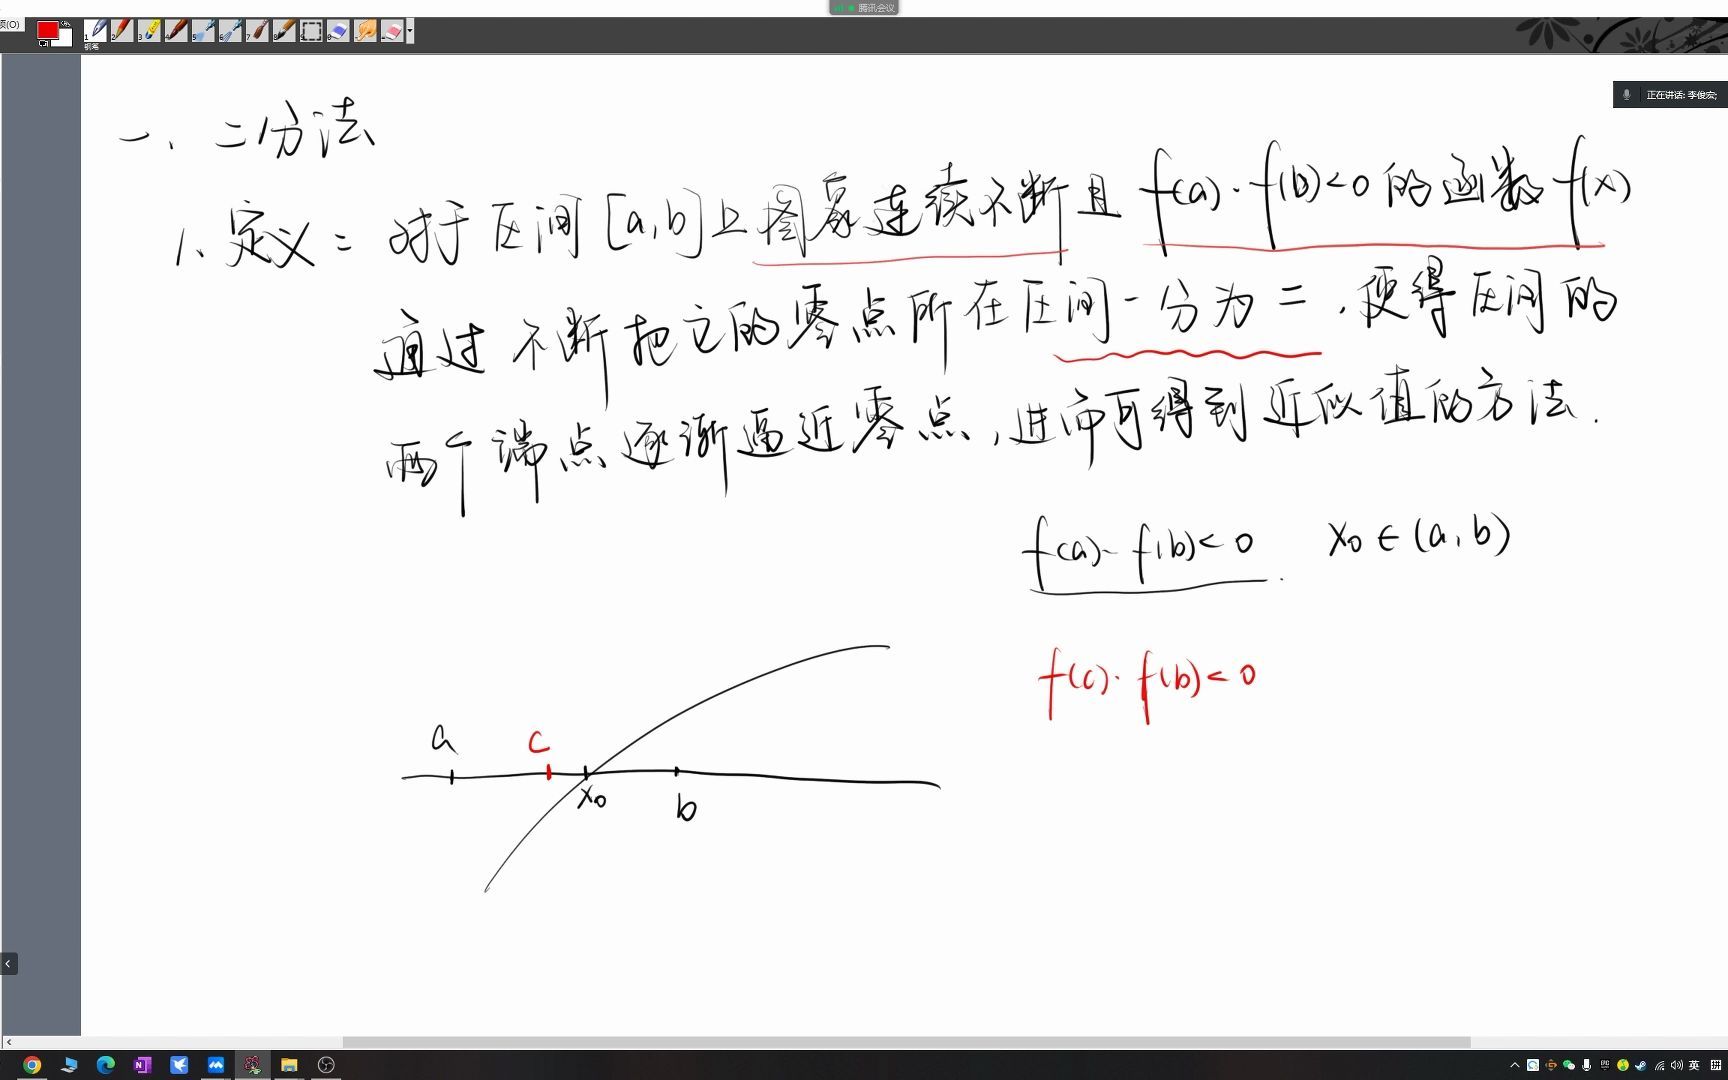 腾讯会议
项(O)
钢笔
正在讲话: 李俊宏;
一、二分法
1、定义：对于区间[a,b]上图象连续不断且f(a)·f(b)<0的函数f(x)
通过不断把它的零点所在区间一分为二，使得区间的
两个端点逐渐逼近零点，进而可得到近似值的方法.
f(a)·f(b)<0 x₀∈(a,b)
f(c)·f(b)<0
a c
x₀ b
英